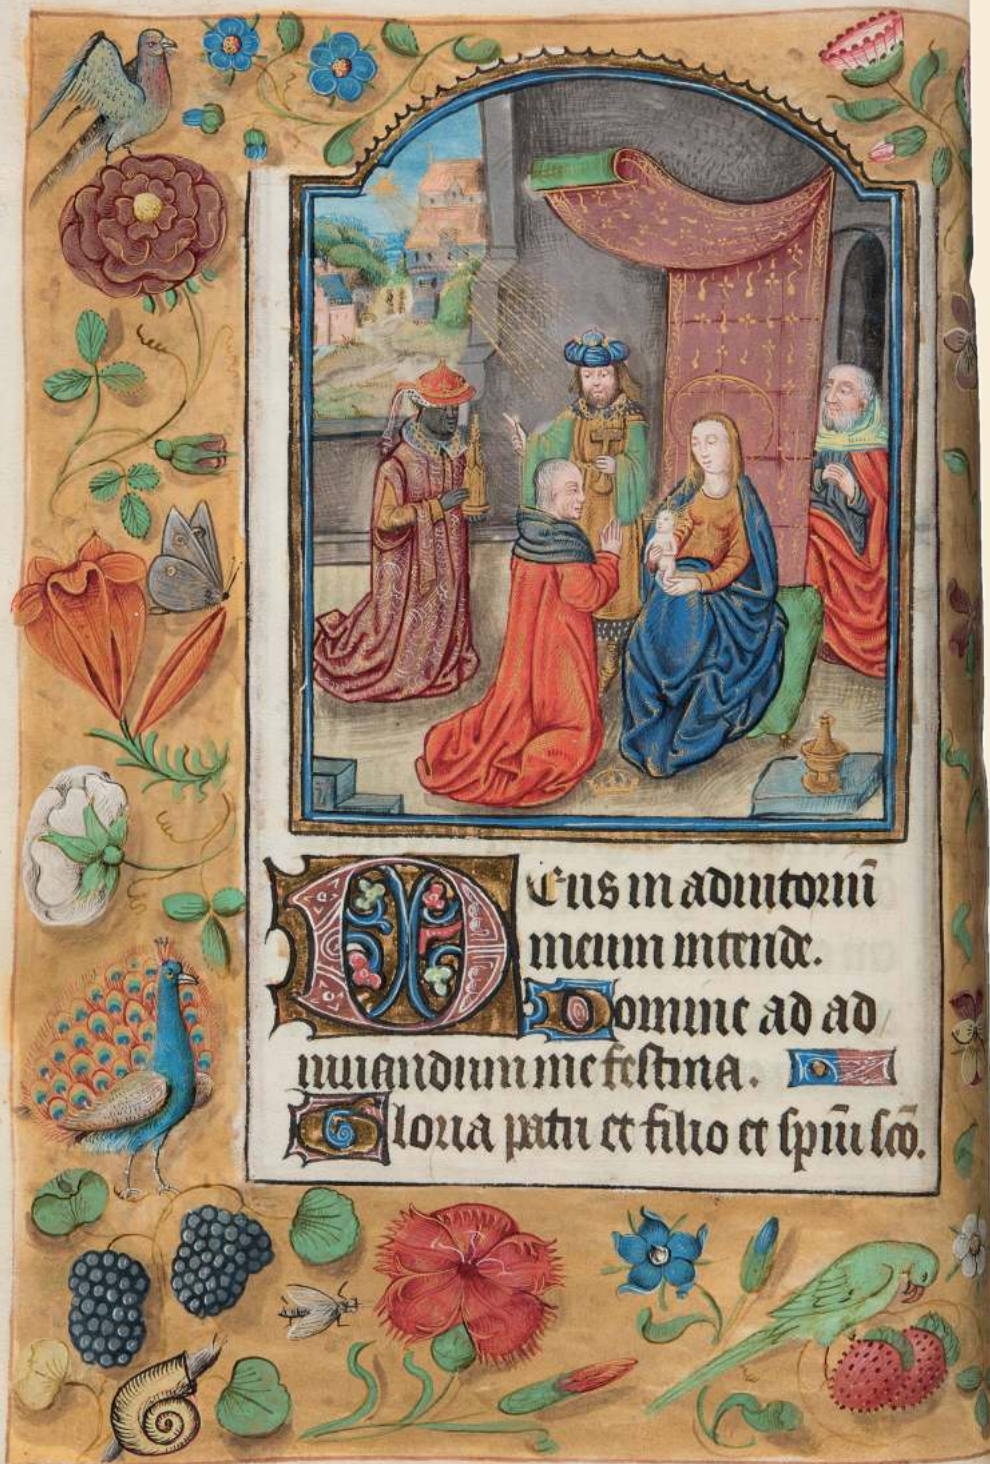 Deus in adiutoriū
meum intende.
Domine ad ad
iuuandum me festina.
Gloria patri et filio et spiūi scō.